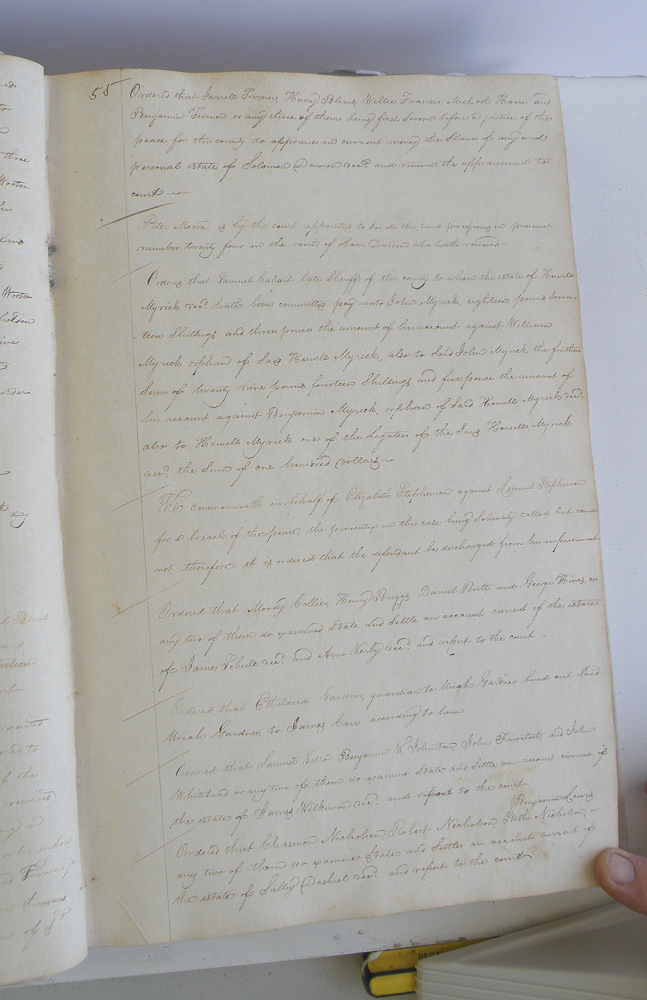 58
Ordered that Jarrell Turner, Henry Blunt, Willie Francis, Michael Harris and
Benjamin Turner or any three of them being first sworn before a justice of the
peace for this county do appraise in current money the Slaves if any and
personal estate of Solomon Dawson decd. and return the appraisement to
court
Peter Moore is by the court appointed to the lands in precinct
number twenty four in the room of who hath removed
Ordered that Samuel Calvert late Sheriff of this county to whom the estate of Howell
Myrick decd. hath been committed pay unto John Myrick, eighteen pounds seven-
teen Shillings and three pence the amount of his account against William
Myrick orphan of Said Howell Myrick, also to Said John Myrick the further
Sum of twenty nine pounds fourteen Shillings and five pence the amount of
his account against Benjamin Myrick, orphan of Said Howell Myrick decd.
also to Howell Myrick one of the legatees of the Said Howell Myrick
decd. the Sum of one hundred dollars
The commonwealth on behalf of Elizabeth Stephenson against Stephenson
for a breach of the peace, the prosecutrix in this case being Solemnly called but came
not therefore it is ordered that the defendant be discharged from his
Ordered that Moody Collier, Henry Briggs, Daniel Butts and George or
any two of them do examine State and Settle an account current of the estate
of James decd. and Ann decd. and report to the court
Ordered that Etheldred Gardner, guardian to Uriah Gardner bind out Said
Uriah Gardner to James Carr according to law
Ordered that Samuel Kello Benjamin W. Johnston John and John
Whitehead or any two of them do examine State and Settle an account current of
the estate of James Wilkinson decd. and report to the court
Benjamin Lewis
Ordered that Nicholson Robert Nicholson Nicholson, or
any two of them do examine State and Settle an account current of
the estate of Sally Dashiel decd. and report to the court